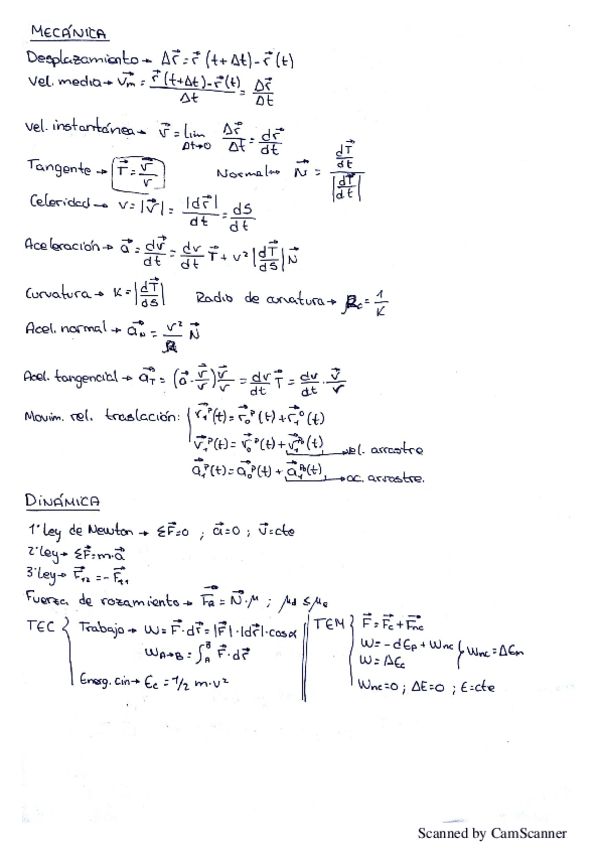 MECÁNICA
Desplazamiento → Δr⃗ = r⃗ (t+Δt) - r⃗ (t)
Vel. media → v⃗m = (r⃗(t+Δt) - r⃗(t)) / Δt = Δr⃗ / Δt
Vel. instantánea → v⃗ = lim Δt→0 Δr⃗/Δt = dr⃗/dt
Tangente → T⃗ = v⃗/v   Normal → N⃗ = (dT⃗/dt) / |dT⃗/dt|
Celeridad → v = |v⃗| = |dr⃗|/dt = dS/dt
Aceleración → a⃗ = dv⃗/dt = dv/dt T⃗ + v² |dT⃗/dS| N⃗
Curvatura → K = |dT⃗/dS|   Radio de curvatura → Rc = 1/K
Acel. normal → a⃗N = v²/R N⃗
Acel. tangencial → a⃗T = (a⃗ · v⃗/v) v⃗/v = dv/dt T⃗ = dv/dt · v⃗/v
Movim. rel. traslación: { r⃗₁ᴾ(t) = r⃗₀ᴾ(t) + r⃗₁⁰(t)
v⃗₁ᴾ(t) = v⃗₀ᴾ(t) + v⃗₁⁰(t) → vel. arrastre
a⃗₁ᴾ(t) = a⃗₀ᴾ(t) + a⃗₁⁰(t) → ac. arrastre.
DINÁMICA
1ª Ley de Newton → ΣF⃗=0 ; a⃗=0 ; v⃗=cte
2ª Ley → ΣF⃗=m·a⃗
3ª Ley → F⃗₁₂ = -F⃗₂₁
Fuerza de rozamiento → F⃗R = N⃗·μ ; μd ≤ μe
TEC { Trabajo → W = F⃗·dr⃗ = |F⃗|·|dr⃗|·cosα
W A→B = ∫ᴬᴮ F⃗·dr⃗
Energ. cin → Ec = 1/2 m·v²
TEM { F⃗ = F⃗c + F⃗nc
W = -dEp + Wnc } Wnc = ΔEm
W = ΔEc
Wnc=0 ; ΔE=0 ; E=cte
Scanned by CamScanner